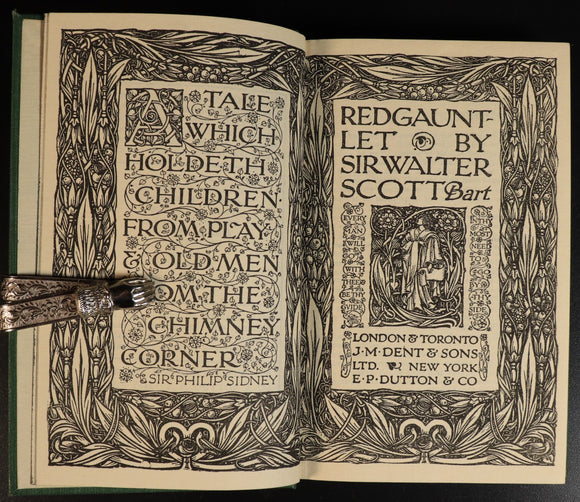 A TALE
WHICH
HOLDETH
CHILDREN
FROM PLAY
& OLD MEN
FROM THE
CHIMNEY
CORNER
SIR PHILIP SIDNEY
REDGAUNT-
LET BY
SIR WALTER
SCOTT Bart.
EVERY
MAN
I WILL
GO
WITH
THEE
& BE THY
GUIDE
IN THY
MOST
NEED
TO GO
BY THY
SIDE
LONDON & TORONTO
J. M. DENT & SONS
LTD. NEW YORK
E. P. DUTTON & CO